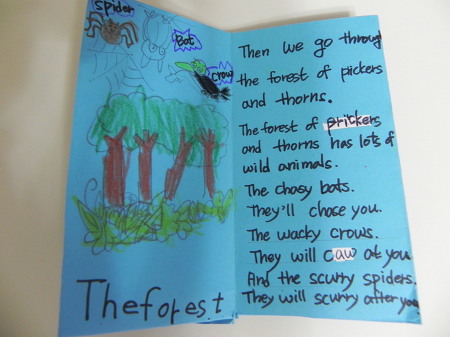 spider
Bat
crow
The forest
Then we go through
the forest of pickers
and thorns.
The forest of pritkers
and thorns has lots of
wild animals.
The chasy bats.
They'll chase you.
The wacky crows.
They will caw at you
And the scurry spiders.
They will scurry after you